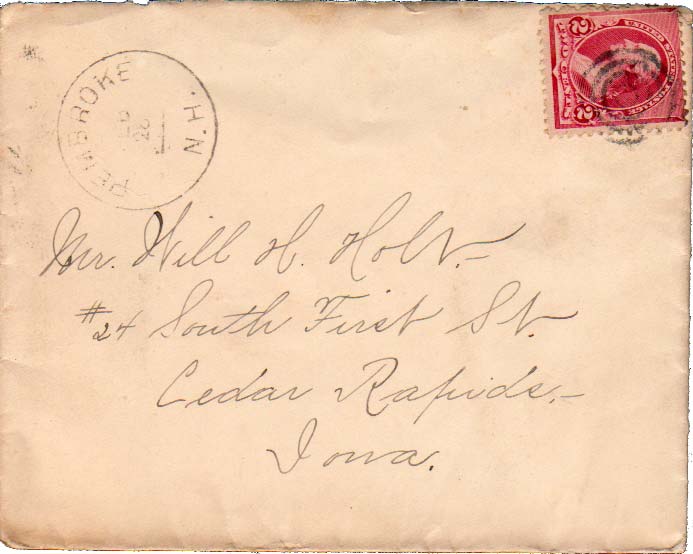 PEMBROKE N.H.
UNITED STATES POSTAGE
2 TWO CENTS 2
Mr. Will H. Holt.
#24 South First St.
Cedar Rapids,
Iowa.